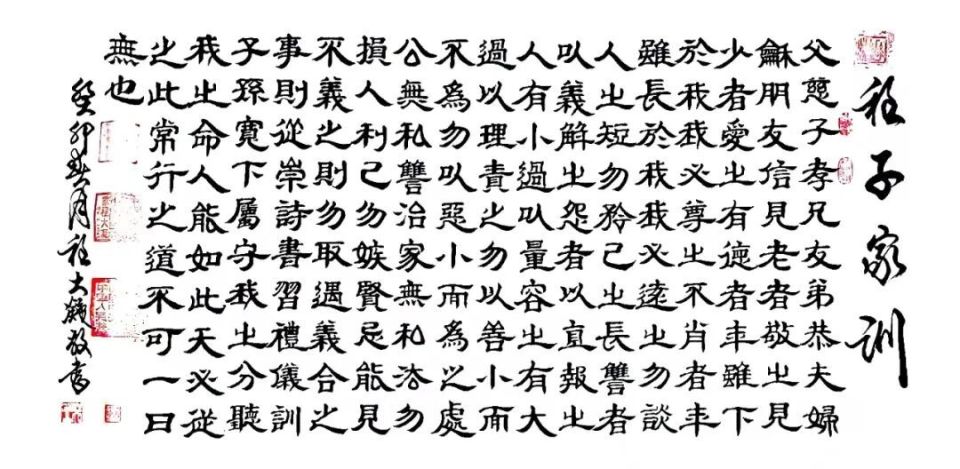 程子家訓
父慈子孝兄友弟恭夫婦
龢朋友信見老者敬之見
少者愛之有德者年雖下
於我我必尊之不肖者年
雖長於我我必遠之勿談
人之短勿矜己之長讐者
以義解之怨者以直報之
人有小過以量容之有大
過以理責之勿以善小而
不為勿以惡小而為之處
公無私讐治家無私法勿
損人利己勿嫉賢忌能見
不義之則勿取遇義合之
事則從崇詩書習禮儀訓
子孫寬下屬守我之分聽
我之命人能如此天必從
之此常行之道不可一日
無也
癸卯春月程大敬書